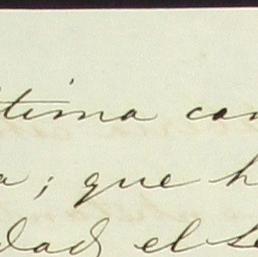 tima can
a; que h
dad el se